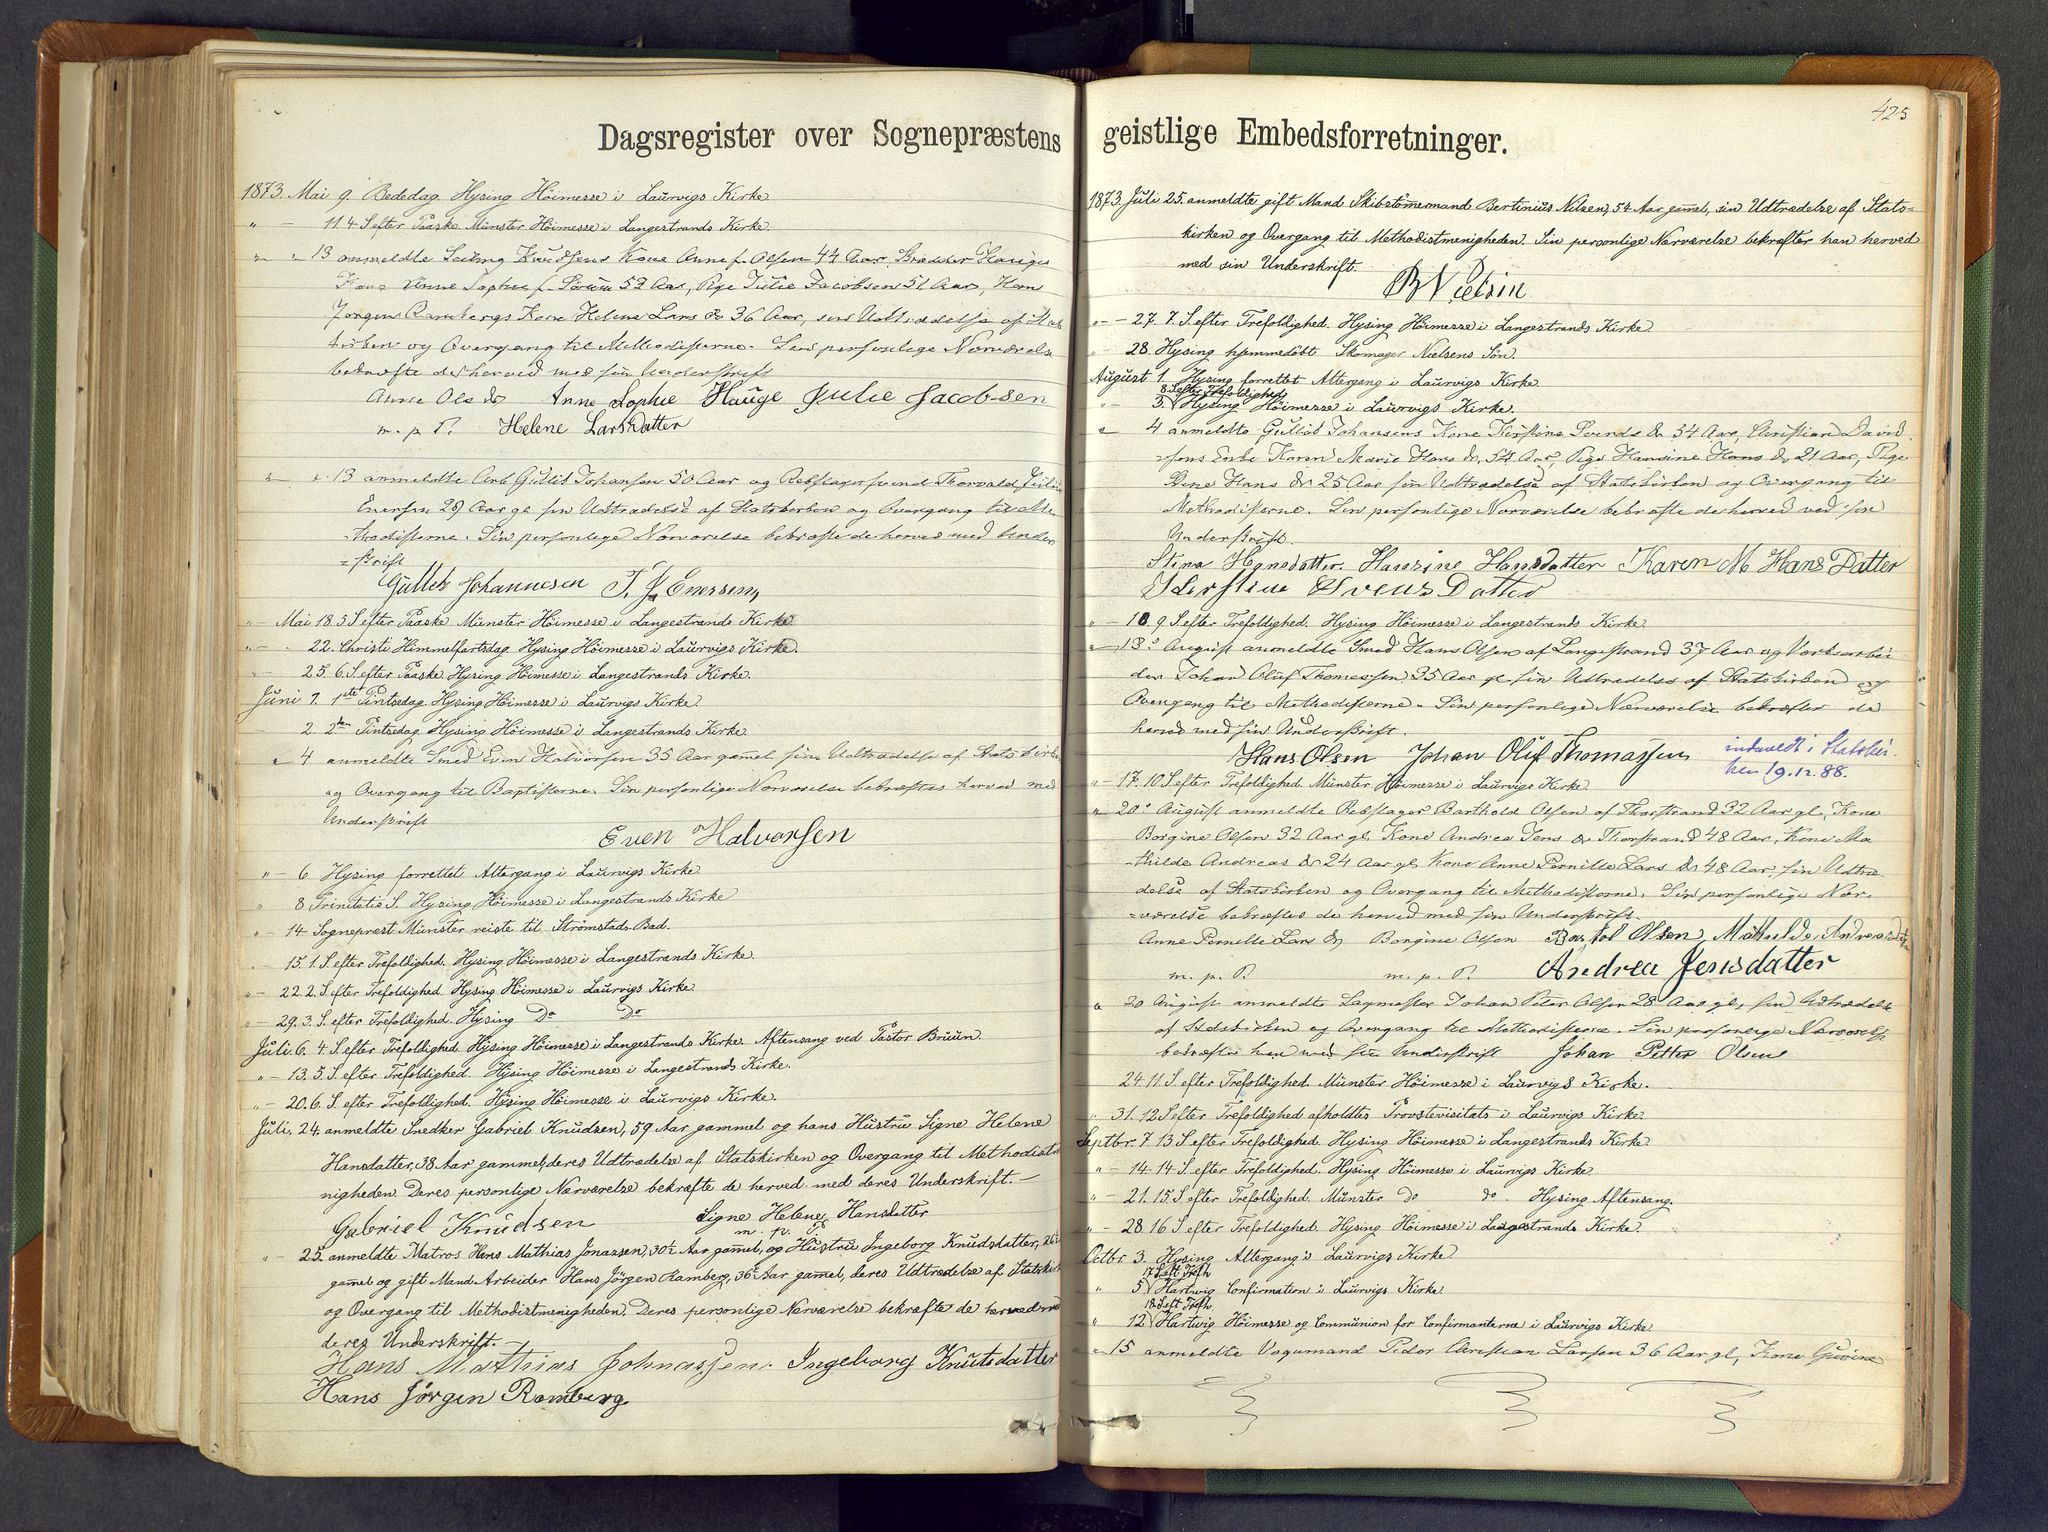 Dagsregister over Sognepræstens
1873. Mai 9. Bededag. Hysing Höimesse i Laurvigs Kirke
" - 11. 4 S. efter Paaske. Münster Höimesse i Langestrands Kirke.
" " 13 anmeldte Knudsens Kone Anne f. Olsen 44 Aar, Hauges
Kone Anne Sophie f. 52 Aar, Pige Julie Jacobsen 51 Aar,
Jørgen Rambergs Kone Helene Lars Dr 36 Aar, sin Udtrædelse af Stats
kirken og Overgang til Methodisterne. Sin personlige Nærværelse
bekræfte de herved med sin Underskrift
Anne Ols Dr Anne Sophie Hauge Julie Jacobsen
m. p. P. Helene LarsDatter
" " 13 anmeldte Arb Gullik Johansen 50 Aar og Rebslagersvend Thorvald
Enersen 29 Aar gl sin Udtrædelse af Statskirken og Overgang til Me
thodisterne. Sin personlige Nærværelse bekræfte de herved med Under
=skrift
Gullek Johannesen T. J. Enersen,
" Mai 18. 5 S. efter Paaske. Münster Höimesse i Langestrands Kirke
" - 22. Christi Himmelfartsdag. Hysing Höimesse i Laurvigs Kirke.
" - 25. 6. S. efter Paaske. Hysing Höimesse i Langestrands Kirke.
Juni 1. 1ste Pintsedag. Hysing Höimesse i Laurvigs Kirke
2. 2den Pintsedag. Hysing Höimesse i Langestrands Kirke
" 4 anmeldte Smed Even Halvorsen 35 Aar gammel sin Udtrædelse af Statskirke
og Overgang til Baptisterne. Sin personlige Nærværelse bekræftes herved med
Underskrift
Even Halvorsen
" - 6 Hysing forrettet Altergang i Laurvigs Kirke
" 8 Trinitatis S. Hysing Höimesse i Langestrands Kirke
" - 14 Sognepræst Münster reiste til Strömstads Bad.
- 15. 1. S. efter Trefoldighed. Hysing Höimesse i Langestrands Kirke.
" - 22. 2. S. efter Trefoldighed. Hysing Höimesse i Laurvigs Kirke
" - 29. 3. S. efter Trefoldighed. Hysing Do Do
Juli. 6. 4. S. efter Trefoldighed. Hysing Höimesse i Langestrands Kirke. Aftensang ved Pastor Bruun.
" - 13. 5. S. efter Trefoldighed. Hysing Höimesse i Langestrands Kirke.
" - 20. 6. S. efter Trefoldighed. Hysing Höimesse i Laurvigs Kirke.
Juli. 24. anmeldte Snedker Gabriel Knudsen, 59 Aar gammel og hans Hustru Signe Helene
Hansdatter, 38 Aar gammel, deres Udtrædelse af Statskirken og Overgang til Methodistme
nigheden. Deres personlige Nærværelse bekræfte de herved med deres Underskrift.-
Gabriel Knudsen Signe Helene Hansdatter
m. p. P.
" - 25. anmeldte Matros Hans Mathias Jonassen, 30½ Aar gammel, og Hustru Ingeborg Knudsdatter, 26
gammel og gift Mand Arbeider Hans Jörgen Ramberg, 36 Aar gammel, deres Udtrædelse af Statskirk
og Overgang til Methodistmenigheden. Deres personlige Nærværelse bekræfte de herved med
deres Underskrift.
Hans Mathias Johnassen. Ingeborg Knutsdatter
Hans Jörgen Romberg.
425
geistlige Embedsforretninger.
1873. Juli 25. anmeldte gift Mand Skibstömmermand Bertinius Nilsen, 54 Aar gammel, sin Udtrædelse af Stats-
kirken og Overgang til Methodistmenigheden. Sin personlige Nærværelse bekræfter han herved
med sin Underskrift.
B Nielsin
" - 27. 7. S. efter Trefoldighed. Hysing Höimesse i Langestrands Kirke
" 28. Hysing hjemmedöbt Skomager Nielsens Sön.
August 1. Hysing forrettet Altergang i Laurvigs Kirke
8. S. efter Trefoldighed
" - 3. Hysing Höimesse i Laurvigs Kirke.
" 4 anmeldte Gullik Johansens Kone Kirstine Svends Dr 54 Aar, Christian David
=sens Enke Karen Marie Hans Dr. 54 Aar, Pige Hansine Hans Dr 21 Aar, Pige
Stine Hans Dr 25 Aar sin Udtrædelse af Statskirken og Overgang til
Methodisterne. Sin personlige Nærværelse bekræfte de herved ved sin
Underskrift.
Stina Hansdatter. Hansine Hansdatter Karen M Hans Datter
Kierstine Svens Datter
" - 10. 9 S. efter Trefoldighed. Hysing Höimesse i Langestrands Kirke.
" - 13. August anmeldte Smed Hans Olsen af Langestrand 37 Aar og Værksarbei
der Johan Oluf Thomassen 35 Aar gl. sin Udtrædelse af Statskirken og
Overgang til Methodisterne. Sin personlige Nærværelse bekræfter de
herved med sin Underskrift.
Hans Olsen Johan Oluf Thomassen indmeldt i Statskir-
ken 19.12.88.
" - 17. 10 S. efter Trefoldighed. Münster Höimesse i Laurvigs Kirke.
" 20. August anmeldte Rebslager Barthold Olsen af Thorstrand 32 Aar gl, Kone
Borgine Olsen 32 Aar gl. Kone Andrea Jens Dr Thorstrand 48 Aar, Kone Ma
thilde Andreas Dr 24 Aar gl, Kone Anne Pernille Lars Dr 48 Aar, sin Udtræ-
delse af Statskirken og Overgang til Methodisterne. Sin personlige Nær-
=værelse bekræftes de herved med sin Underskrift.
Anne Pernille Lars Dr Borgine Olsen Bartol Olsen, Mathilde Andreasdatter
m. p. P. m. p. P. Andrea Jensdatter
" 20 August anmeldte Johan Peter Olsen 28 Aar gl, sin Udtrædelse
af Statskirken og Overgang til Methodisterne. Sin personlige Nærværelse
bekræfter han med sin Underskrift Johan Petter Olsen
24. 11. S. efter Trefoldighed. Münster Höimesse i Laurvigs Kirke.
" 31. 12 S. efter Trefoldighed afholdtes Provstevisitats i Laurvigs Kirke.
Septbr. 7. 13 S. efter Trefoldighed. Hysing Höimesse i Langestrands Kirke
" - 14. 14 S. efter Trefoldighed. Hysing Höimesse i Laurvigs Kirke
" - 21. 15 S. efter Trefoldighed. Münster do do. Hysing Aftensang.
" - 28. 16 S. efter Trefoldighed. Hysing Höimesse i Langestrands Kirke.
Octbr. 3. Hysing Altergang i Laurvigs Kirke
17 S. eft Trefh
" 5 Hartvig Confirmation i Laurvigs Kirke.
18 S. eft Trefh.
" 12 Hartvig Höimesse og Communion for Confirmanterne i Laurvigs Kirke.
" 15 anmeldte Vognmand Peder Christian Larsen 36 Aar gl, Kone